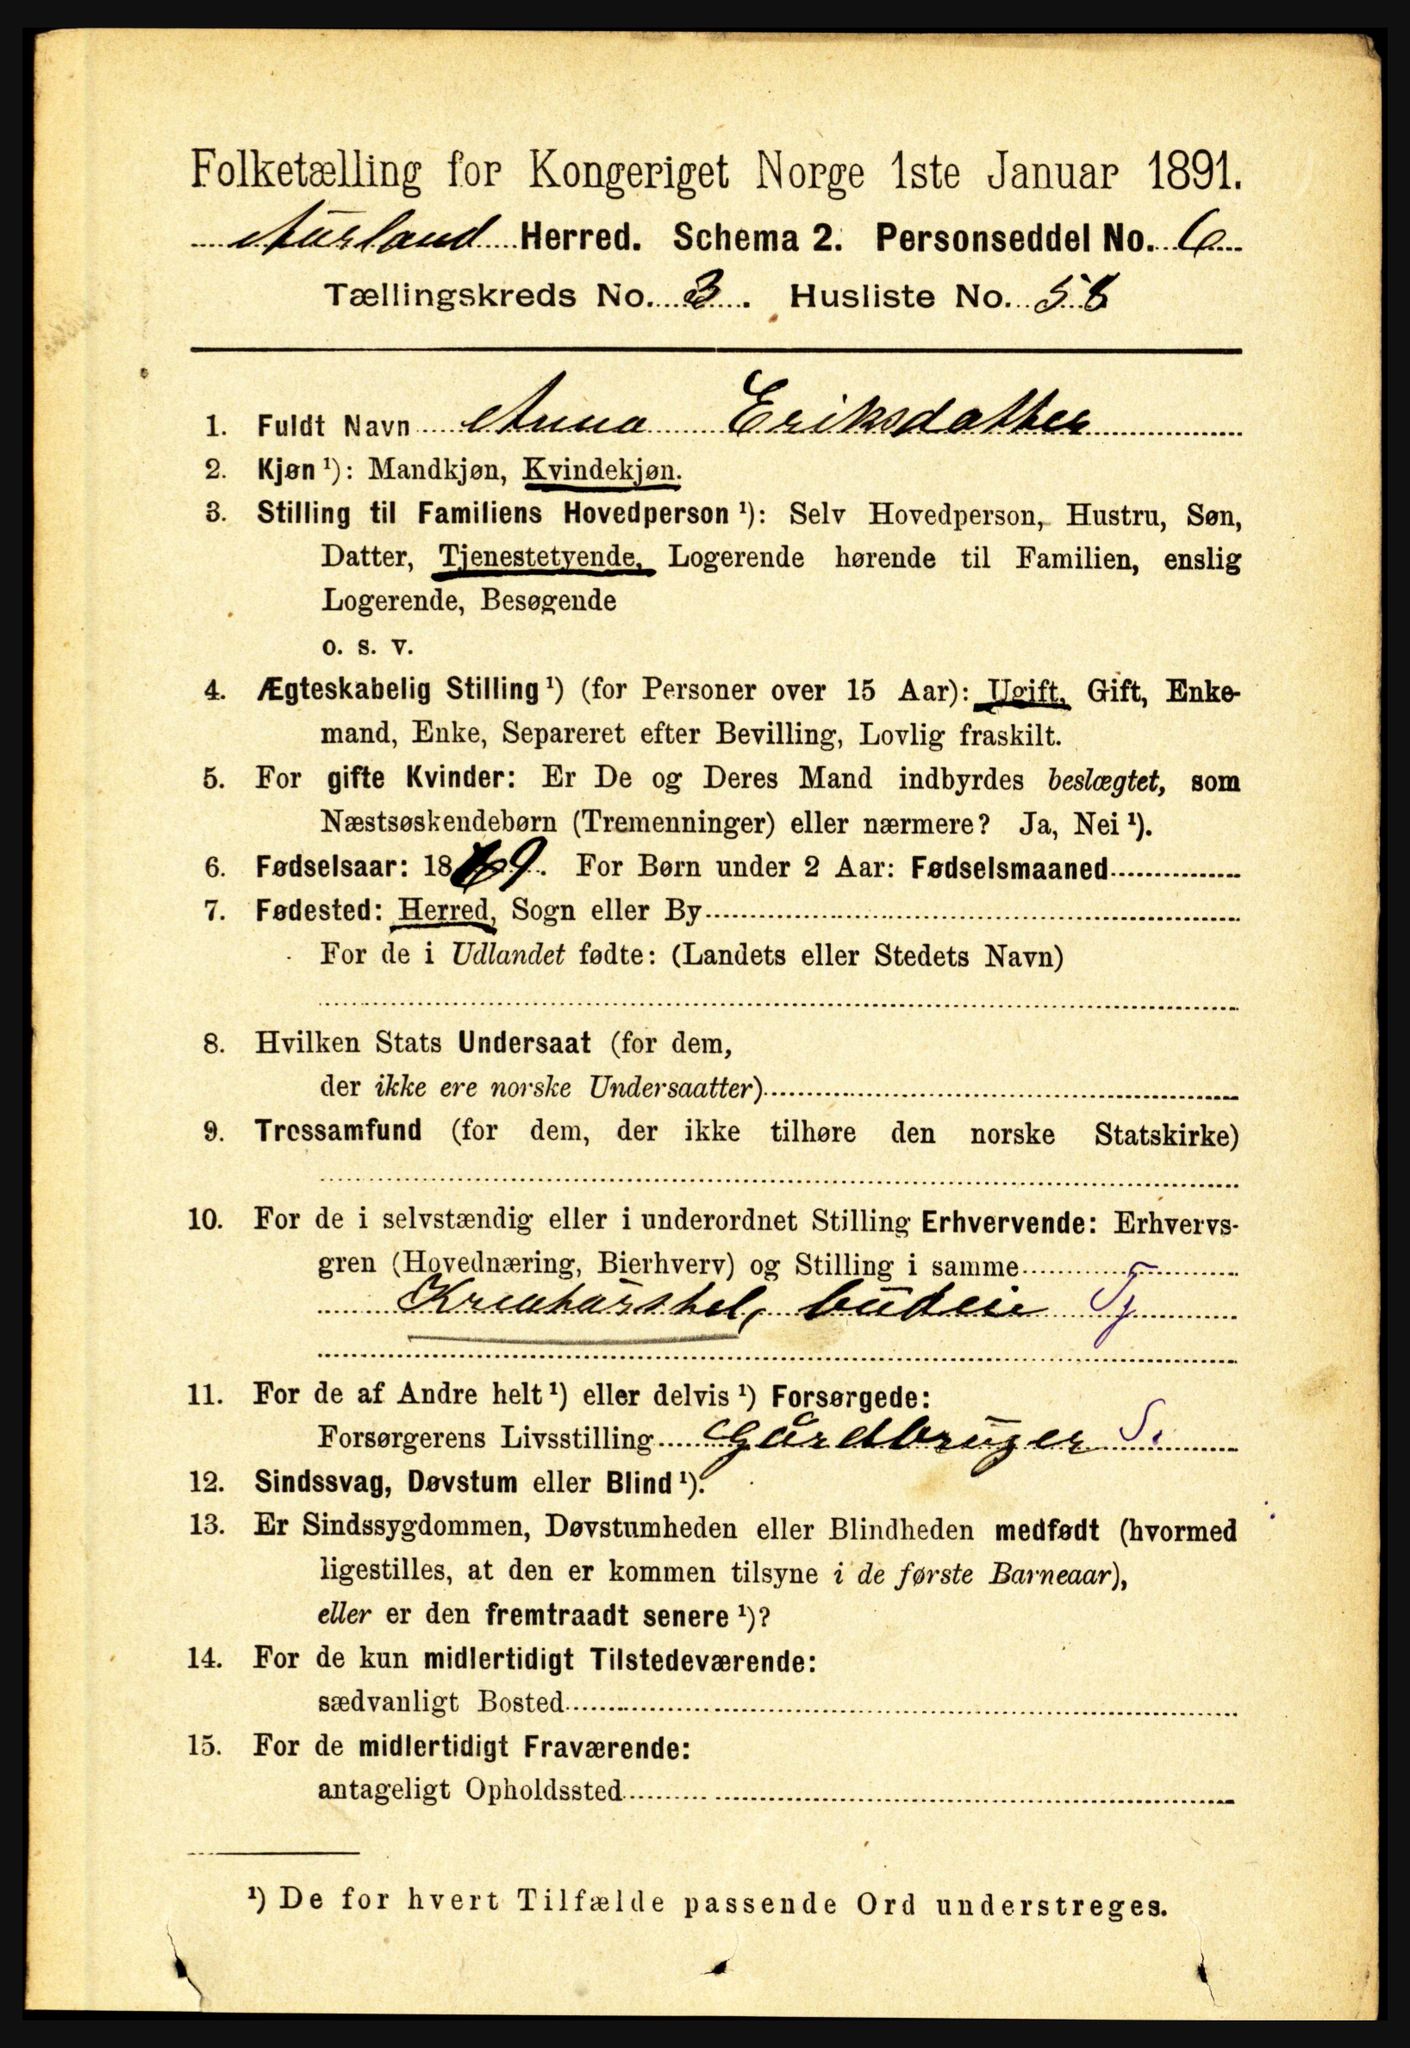 Folketælling for Kongeriget Norge 1ste Januar 1891.
Aurland Herred. Schema 2. Personseddel No. 6
Tællingskreds No. 3. Husliste No. 58
1. Fuldt Navn Anna Eriksdatter
2. Kjøn ¹): Mandkjøn, Kvindekjøn.
3. Stilling til Familiens Hovedperson ¹): Selv Hovedperson, Hustru, Søn,
Datter, Tjenestetyende, Logerende hørende til Familien, enslig
Logerende, Besøgende
o. s. v.
4. Ægteskabelig Stilling ¹) (for Personer over 15 Aar): Ugift, Gift, Enke-
mand, Enke, Separeret efter Bevilling, Lovlig fraskilt.
5. For gifte Kvinder: Er De og Deres Mand indbyrdes beslægtet, som
Næstsøskendebørn (Tremenninger) eller nærmere? Ja, Nei ¹).
6. Fødselsaar: 1869. For Børn under 2 Aar: Fødselsmaaned
7. Fødested: Herred, Sogn eller By
For de i Udlandet fødte: (Landets eller Stedets Navn)
8. Hvilken Stats Undersaat (for dem,
der ikke ere norske Undersaatter)
9. Trossamfund (for dem, der ikke tilhøre den norske Statskirke)
10. For de i selvstændig eller i underordnet Stilling Erhvervende: Erhvervs-
gren (Hovednæring, Bierhverv) og Stilling i samme
Kreaturstel, budeie Tj
11. For de af Andre helt ¹) eller delvis ¹) Forsørgede:
Forsørgerens Livsstilling Gårdbruger S.
12. Sindssvag, Døvstum eller Blind ¹).
13. Er Sindssygdommen, Døvstumheden eller Blindheden medfødt (hvormed
ligestilles, at den er kommen tilsyne i de første Barneaar),
eller er den fremtraadt senere ¹)?
14. For de kun midlertidigt Tilstedeværende:
sædvanligt Bosted
15. For de midlertidigt Fraværende:
antageligt Opholdssted
¹) De for hvert Tilfælde passende Ord understreges.